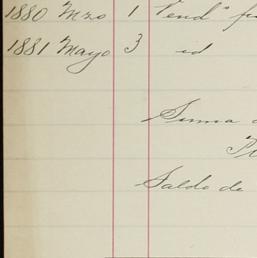 1880 Mzo 1 Vend°
1881 Mayo 3 id
Suma
Saldo de